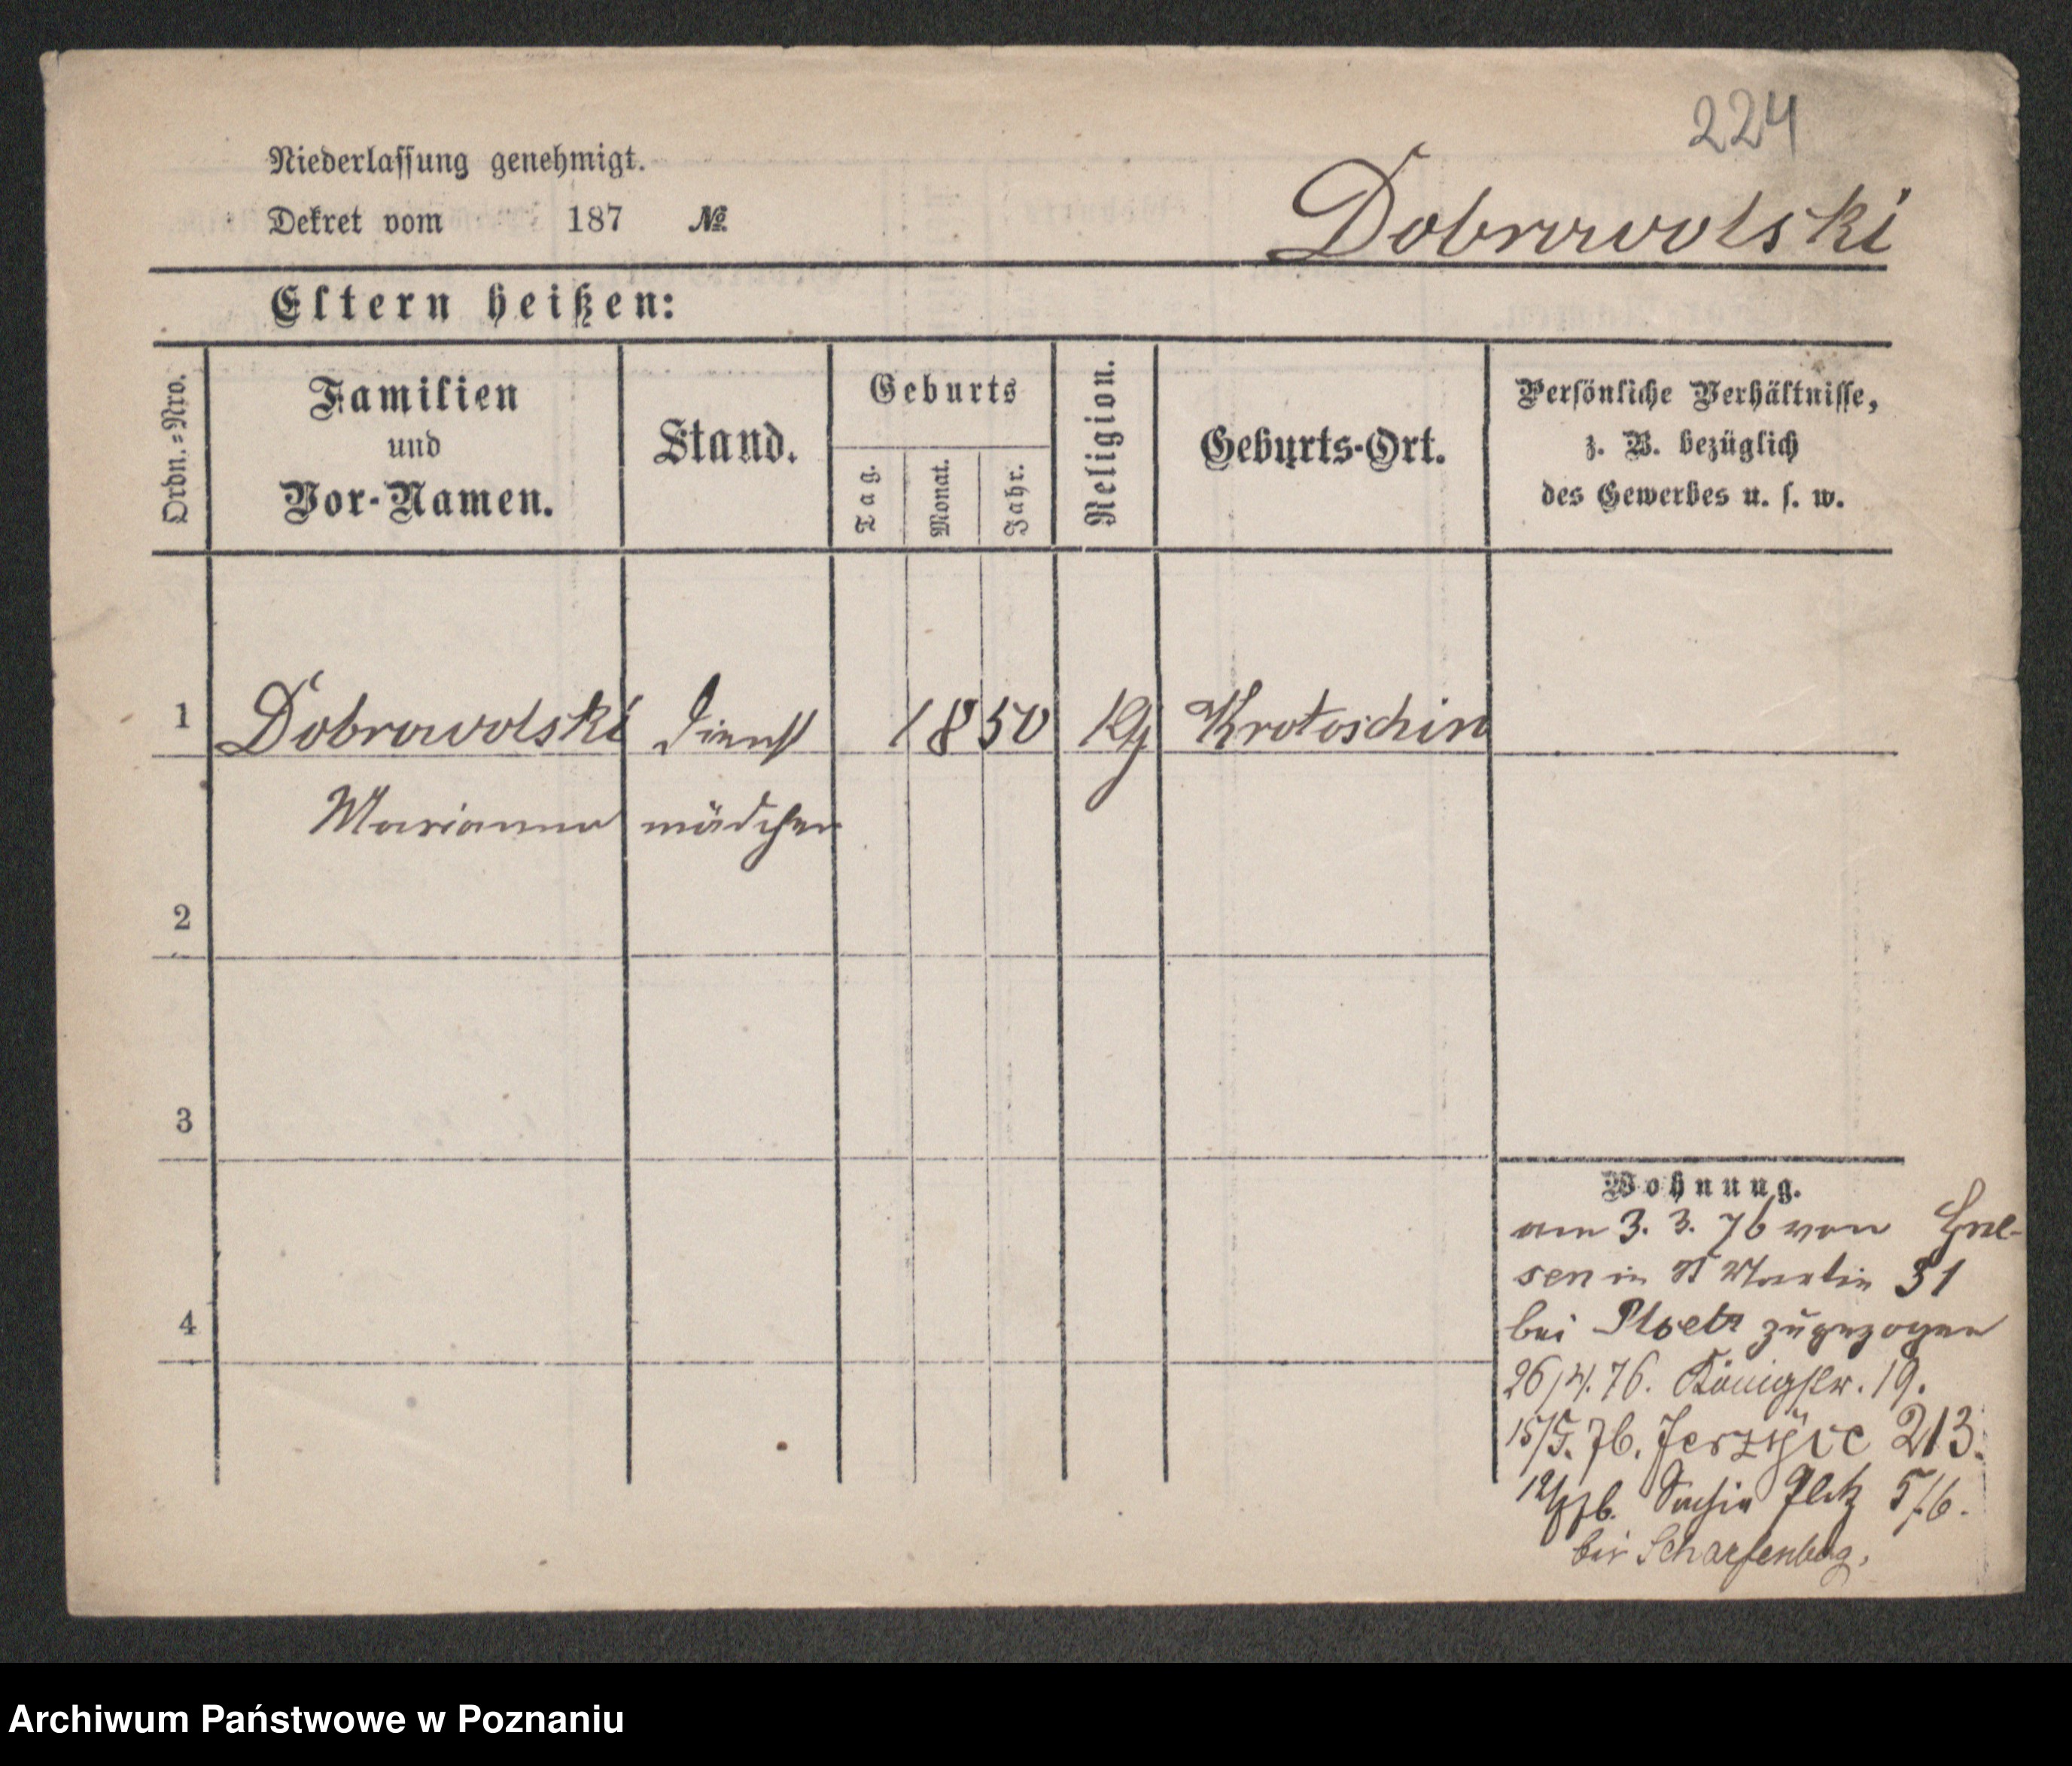 224
Niederlassung genehmigt.
Dekret vom 187 №
Dobrowolski
Eltern heißen:
Ordn.=Nro.
Familien
und
Vor-Namen.
Stand.
Geburts
Tag.
Monat.
Jahr.
Religion.
Geburts-Ort.
Persönliche Verhältnisse,
z. B. bezüglich
des Gewerbes u. s. w.
1 Dobrowolski Dienst 1850 Krotoschin
Marianna mädchen
2
3
4
Wohnung.
am 3. 3. 76 von Gne-
sen in St Martin 31
bei Ploetz zugezogen
26/4. 76. Königstr. 19.
15/5. 76. Jerzyce 213.
Platz 5/6.
bei Scharfenbg.
Archiwum Państwowe w Poznaniu